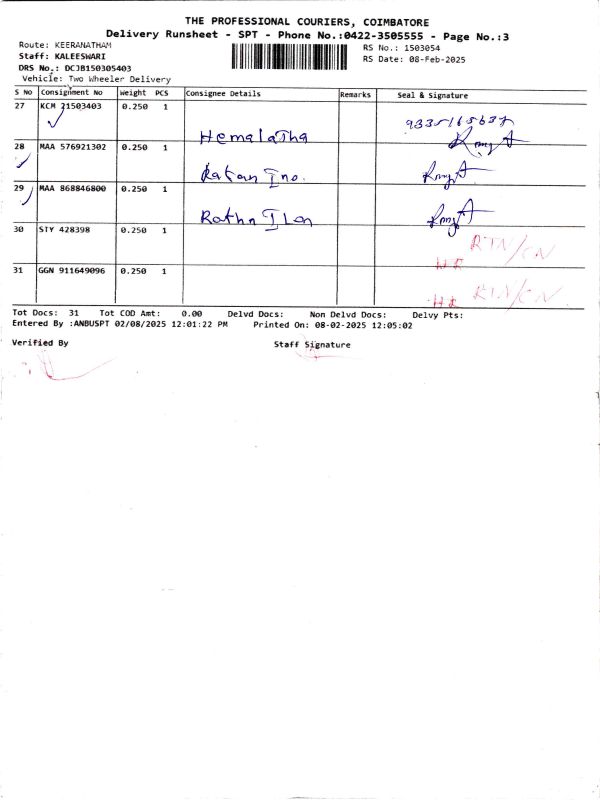 THE PROFESSIONAL COURIERS, COIMBATORE
Delivery Runsheet - SPT - Phone No.:0422-3505555 - Page No.:3
Route: KEERANATHAM
RS No.: 1503054
Staff: KALEESWARI
RS Date: 08-Feb-2025
DRS No.: DCJB150305403
Vehicle: Two Wheeler Delivery
S No Consignment No Weight PCS Consignee Details Remarks Seal & Signature
27 KCM 21503403 0.250 1
Hemalatha
28 MAA 576921302 0.250 1
29 MAA 868846800 0.250 1
30 STY 428398 0.250 1
RTN/CN
31 GGN 911649096 0.250 1
RTN/CN
Tot Docs: 31 Tot COD Amt: 0.00 Delvd Docs: Non Delvd Docs: Delvy Pts:
Entered By :ANBUSPT 02/08/2025 12:01:22 PM Printed On: 08-02-2025 12:05:02
Verified By Staff Signature